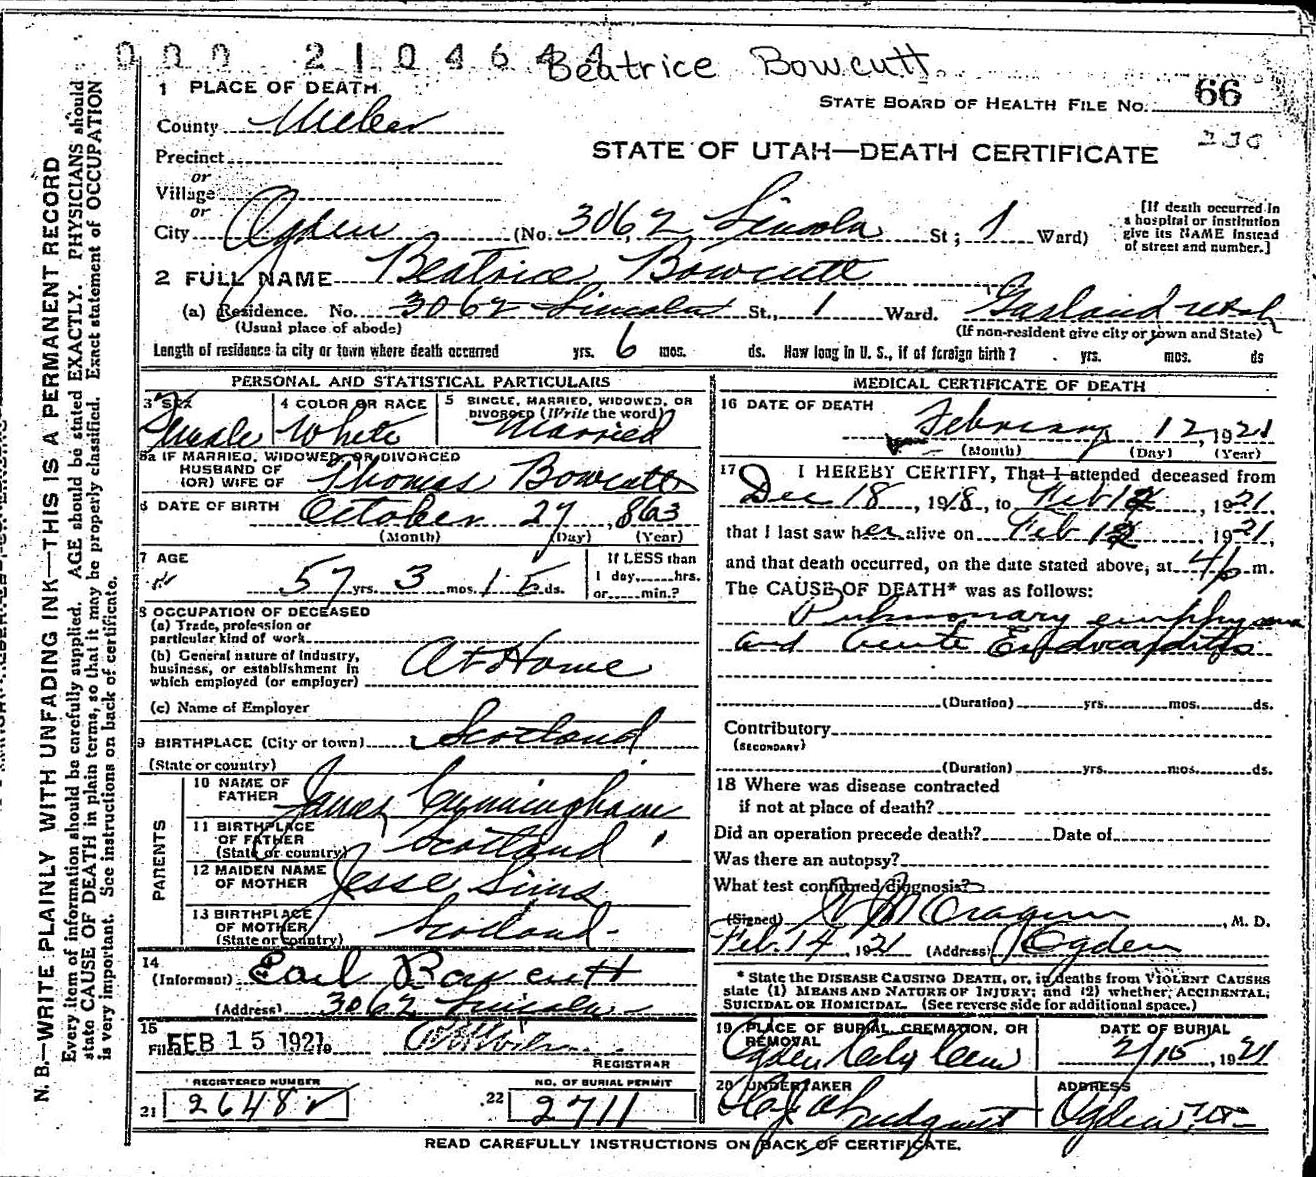 000 2104644
Beatrice Bowcutt
1 PLACE OF DEATH
STATE BOARD OF HEALTH FILE No. 66
County Weber
230
Precinct
STATE OF UTAH—DEATH CERTIFICATE
or
Village
or
City Ogden (No. 3062 Lincoln St; 1 Ward)
[If death occurred in
a hospital or institution
give its NAME instead
of street and number.]
2 FULL NAME Beatrice Bowcutt
(a) Residence. No. 3062 Lincoln St., 1 Ward. Garland Utah
(Usual place of abode) (If non-resident give city or town and State)
Length of residence in city or town where death occurred yrs. 6 mos. ds. How long in U. S., if of foreign birth? yrs. mos. ds
PERSONAL AND STATISTICAL PARTICULARS
3 SEX 4 COLOR OR RACE 5 SINGLE, MARRIED, WIDOWED, OR
DIVORCED (Write the word)
Female White Married
5a IF MARRIED, WIDOWED, OR DIVORCED
HUSBAND OF
(OR) WIFE OF Thomas Bowcutt
6 DATE OF BIRTH October 27, 863
(Month) (Day) (Year)
7 AGE 57 yrs. 3 mos. 15 ds.
If LESS than
1 day,......hrs.
or......min.?
8 OCCUPATION OF DECEASED
(a) Trade, profession or
particular kind of work
(b) General nature of Industry,
business, or establishment in
which employed (or employer) At Home
(c) Name of Employer
9 BIRTHPLACE (City or town) Scotland
(State or country)
PARENTS
10 NAME OF
FATHER James Cunningham
11 BIRTHPLACE
OF FATHER
(State or country) Scotland
12 MAIDEN NAME
OF MOTHER Jesse Sims
13 BIRTHPLACE
OF MOTHER
(State or country) Scotland
14
(Informant) Earl Bowcutt
(Address) 3062 Lincoln
15
Filed FEB 15 1921
REGISTRAR
REGISTERED NUMBER
21 2648
NO. OF BURIAL PERMIT
22 2711
MEDICAL CERTIFICATE OF DEATH
16 DATE OF DEATH
February 12, 1921
(Month) (Day) (Year)
17 I HEREBY CERTIFY, That I attended deceased from
Dec 18, 1918, to Feb 12, 1921
that I last saw her alive on Feb 12 1921,
and that death occurred, on the date stated above, at m.
The CAUSE OF DEATH* was as follows:
Pulmonary emphysema
and Acute Endocarditis
(Duration) yrs. mos. ds.
Contributory
(SECONDARY)
(Duration) yrs. mos. ds.
18 Where was disease contracted
if not at place of death?
Did an operation precede death? Date of
Was there an autopsy?
What test confirmed diagnosis?
(Signed) , M. D.
Feb. 14 1921 (Address) Ogden
* State the DISEASE CAUSING DEATH, or, in deaths from VIOLENT CAUSES
state (1) MEANS AND NATURE OF INJURY; and (2) whether ACCIDENTAL,
SUICIDAL OR HOMICIDAL. (See reverse side for additional space.)
19 PLACE OF BURIAL, CREMATION, OR
REMOVAL
DATE OF BURIAL
Ogden City Cem 2/15, 1921
20 UNDERTAKER ADDRESS
Lindquist Ogden
READ CAREFULLY INSTRUCTIONS ON BACK OF CERTIFICATE.
N. B.—WRITE PLAINLY WITH UNFADING INK—THIS IS A PERMANENT RECORD
Every item of information should be carefully supplied. AGE should be stated EXACTLY. PHYSICIANS should
state CAUSE OF DEATH in plain terms, so that it may be properly classified. Exact statement of OCCUPATION
is very important. See instructions on back of certificate.